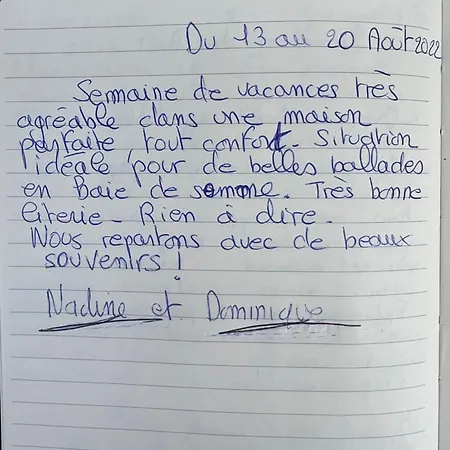 Du 13 au 20 Août 2022
Semaine de vacances très
agréable dans une maison
parfaite, tout confort. Situation
idéale pour de belles ballades
en Baie de somme. Très bonne
literie - Rien à dire.
Nous repartons avec de beaux
souvenirs !
Nadine et Dominique